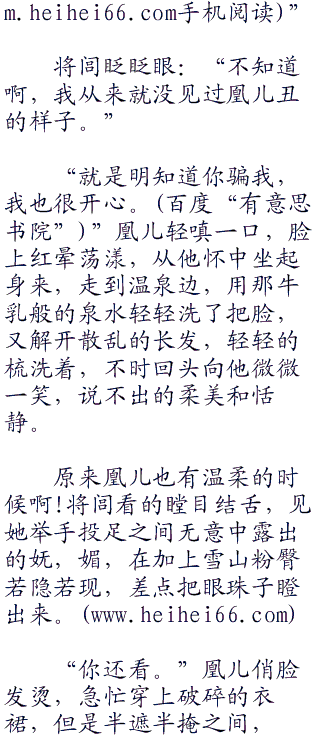 m.heihei66.com手机阅读)”
将闾眨眨眼：“不知道
啊，我从来就没见过凰儿丑
的样子。”
“就是明知道你骗我，
我也很开心。(百度“有意思
书院”)”凰儿轻嗔一口，脸
上红晕荡漾，从他怀中坐起
身来，走到温泉边，用那牛
乳般的泉水轻轻洗了把脸，
又解开散乱的长发，轻轻的
梳洗着，不时回头向他微微
一笑，说不出的柔美和恬
静。
原来凰儿也有温柔的时
候啊!将闾看的瞠目结舌，见
她举手投足之间无意中露出
的妩，媚，在加上雪山粉臀
若隐若现，差点把眼珠子瞪
出来。(www.heihei66.com)
“你还看。”凰儿俏脸
发烫，急忙穿上破碎的衣
裙，但是半遮半掩之间，